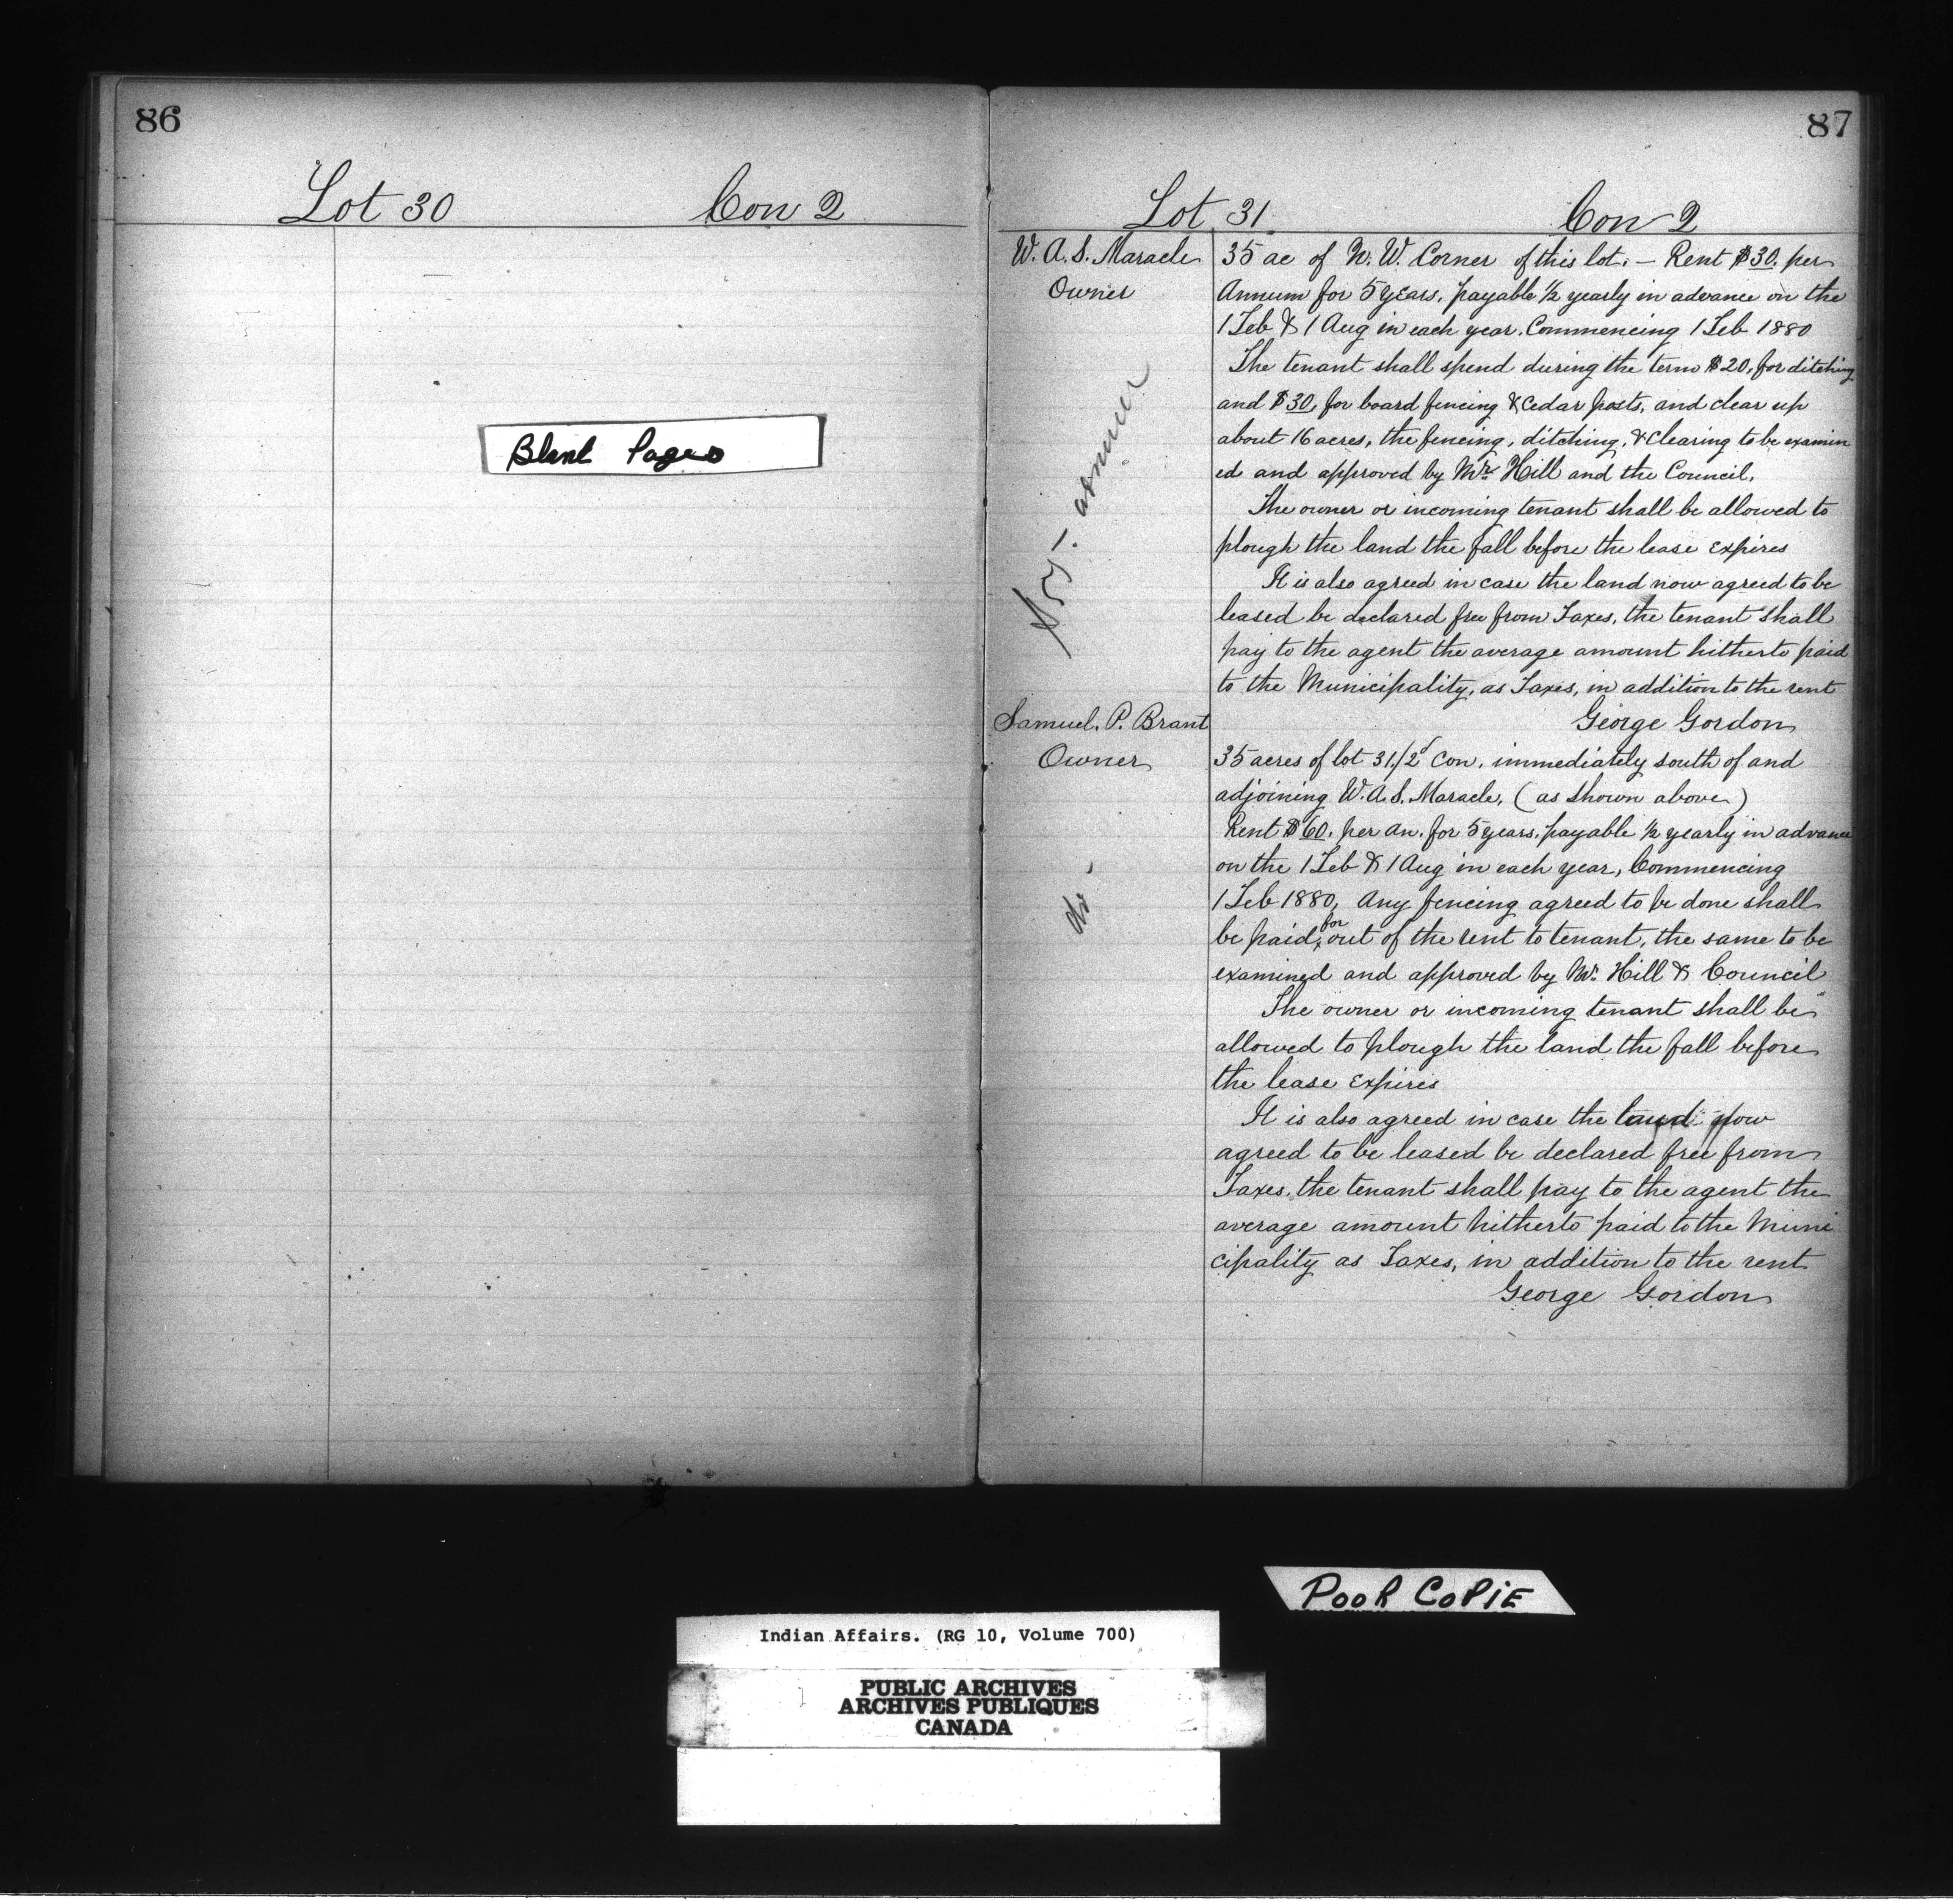 86
Lot 30 Con 2
Blank Pages
87
Lot 31 Con 2
W. A. S. Maracle
Owner
35 ac of N. W. Corner of this lot. — Rent $30. per
Annum for 5 years, payable ½ yearly in advance on the
1 Feb & 1 Aug in each year. Commencing 1 Feb 1880
The tenant shall spend during the term $20, for ditching
and $30, for board fencing & Cedar posts, and clear up
about 16 acres, the fencing, ditching, & clearing to be examin
ed and approved by Mr Hill and the Council.
The owner or incoming tenant shall be allowed to
plough the land the fall before the lease expires
It is also agreed in case the land now agreed to be
leased be declared free from Taxes, the tenant shall
pay to the agent the average amount hitherto paid
to the Municipality, as Taxes, in addition to the rent
George Gordon
Samuel. P. Brant
Owner
35 acres of lot 31./2d Con, immediately south of and
adjoining W. A. S. Maracle, (as shown above)
Rent $60. per an. for 5 years, payable ½ yearly in advance
on the 1 Feb & 1 Aug in each year, Commencing
1 Feb 1880, Any fencing agreed to be done shall
be paid for out of the rent to tenant, the same to be
examined and approved by Mr. Hill & Council
The owner or incoming tenant shall be
allowed to plough the land the fall before
the lease expires
It is also agreed in case the land now
agreed to be leased be declared free from
Taxes, the tenant shall pay to the agent the
average amount hitherto paid to the Muni
cipality as Taxes, in addition to the rent
George Gordon
do -
POOR COPiE
Indian Affairs. (RG 10, Volume 700)
PUBLIC ARCHIVES
ARCHIVES PUBLIQUES
CANADA